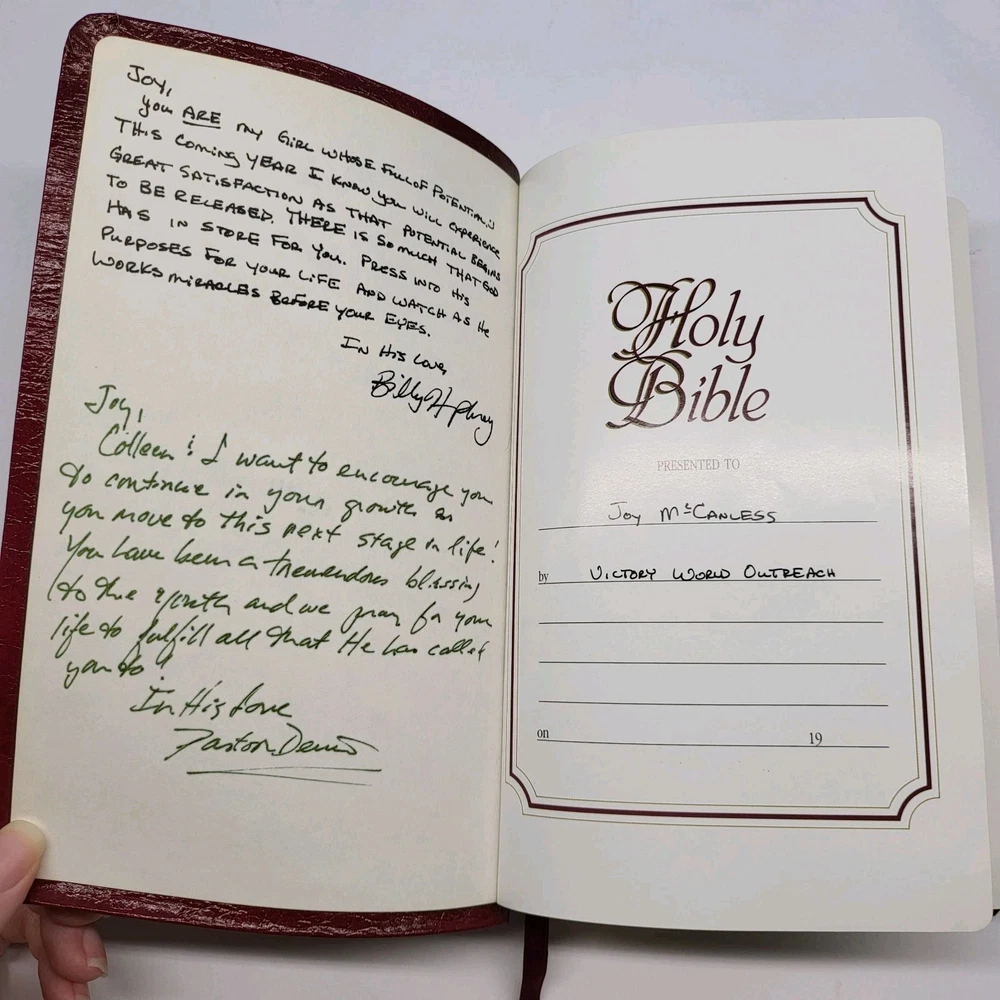 Joy,
you ARE my GIRL WHOSE FULL OF POTENTIAL :)
THIS COMING YEAR I KNOW YOU WILL EXPERIENCE
GREAT SATISFACTION AS THAT POTENTIAL BEGINS
TO BE RELEASED. THERE IS SO MUCH THAT GOD
HAS IN STORE FOR YOU. PRESS INTO HIS
PURPOSES FOR YOUR LIFE AND WATCH AS HE
WORKS MIRACLES BEFORE YOUR EYES.
IN HIS LOVE,
Billy Humphrey
Joy,
Colleen & I want to encourage you
to continue in your growth as
you move to this next stage in life!
You have been a tremendous blessing
to the youth and we pray for your
life to fulfill all that He has called
you to!
In His Love
Pastor Dennis
Holy
Bible
PRESENTED TO
Joy McCanless
by VICTORY WORLD OUTREACH
on 19